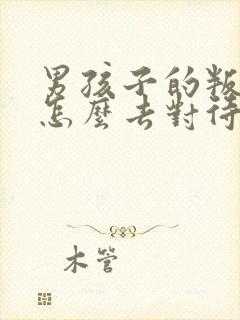 男孩子的叛
怎麼去對待
木管